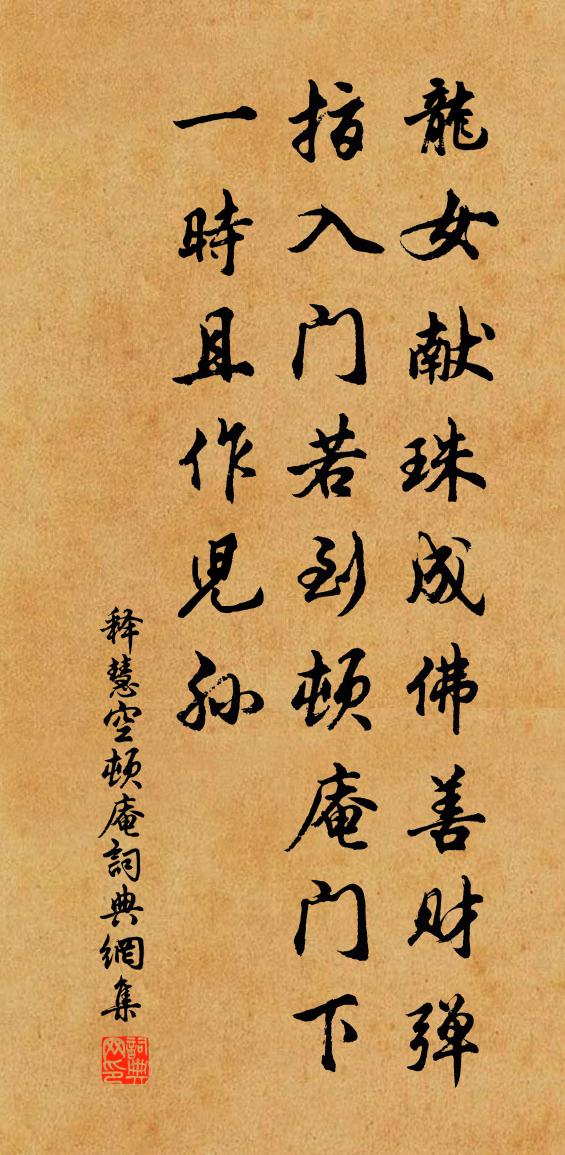 龍女献珠成佛善财弹
指入门若到顿庵门下
一時且作兒孙
释慧空顿庵詞典網集
詞典
网印